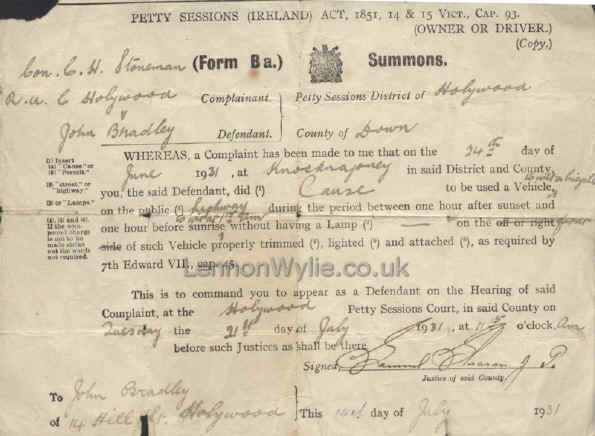 PETTY SESSIONS (IRELAND) ACT, 1851, 14 & 15 VICT., CAP. 93.
(OWNER OR DRIVER.)
(Copy.)
Con. C. H. Stoneman (Form B a.) Summons.
R.U.C Holywood Complainant. Petty Sessions District of Holywood
John Bradley Defendant. County of Down
WHEREAS, a Complaint has been made to me that on the 24th day of
June 1931, at Knocknagoney in said District and County,
you, the said Defendant, did (¹) Cause to be used a Vehicle,
on the public (²) highway during the period between one hour after sunset and
one hour before sunrise without having a Lamp (³) — on the off or right
side of such Vehicle properly trimmed (⁴), lighted and attached (⁵), as required by
7th Edward VII., cap. 45.
LennonWylie.co.uk
This is to command you to appear as a Defendant on the Hearing of said
Complaint, at the Holywood Petty Sessions Court, in said County on
Tuesday the 21st day of July 1931, at 11 o'clock, Am
before such Justices as shall be there.
Signed, Samuel J. P.
Justice of said County.
To John Bradley
of 14 Hill St. Holywood This day of July 1931
(1) Insert
(a) "Cause" or
(b) "Permit."
(2) "street," or
"highway"
(3) or "Lamps"
(4), (5) and (6).
If the
portion charge
is not to be
made strike
out the words
not required.